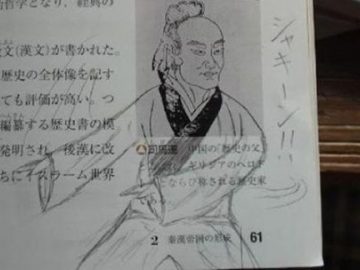 的哲学となり，経典の
文(漢文)が書かれた。
歴史の全体像を記す
ても評価が高い。つ
編纂する歴史書の模
発明され，後漢に改
ちにイスラーム世界
シャキーン!!
司馬遷 中国の「歴史の父」
ギリシアのヘロド
とならび称される歴史家
2 秦漢帝国の形成 61